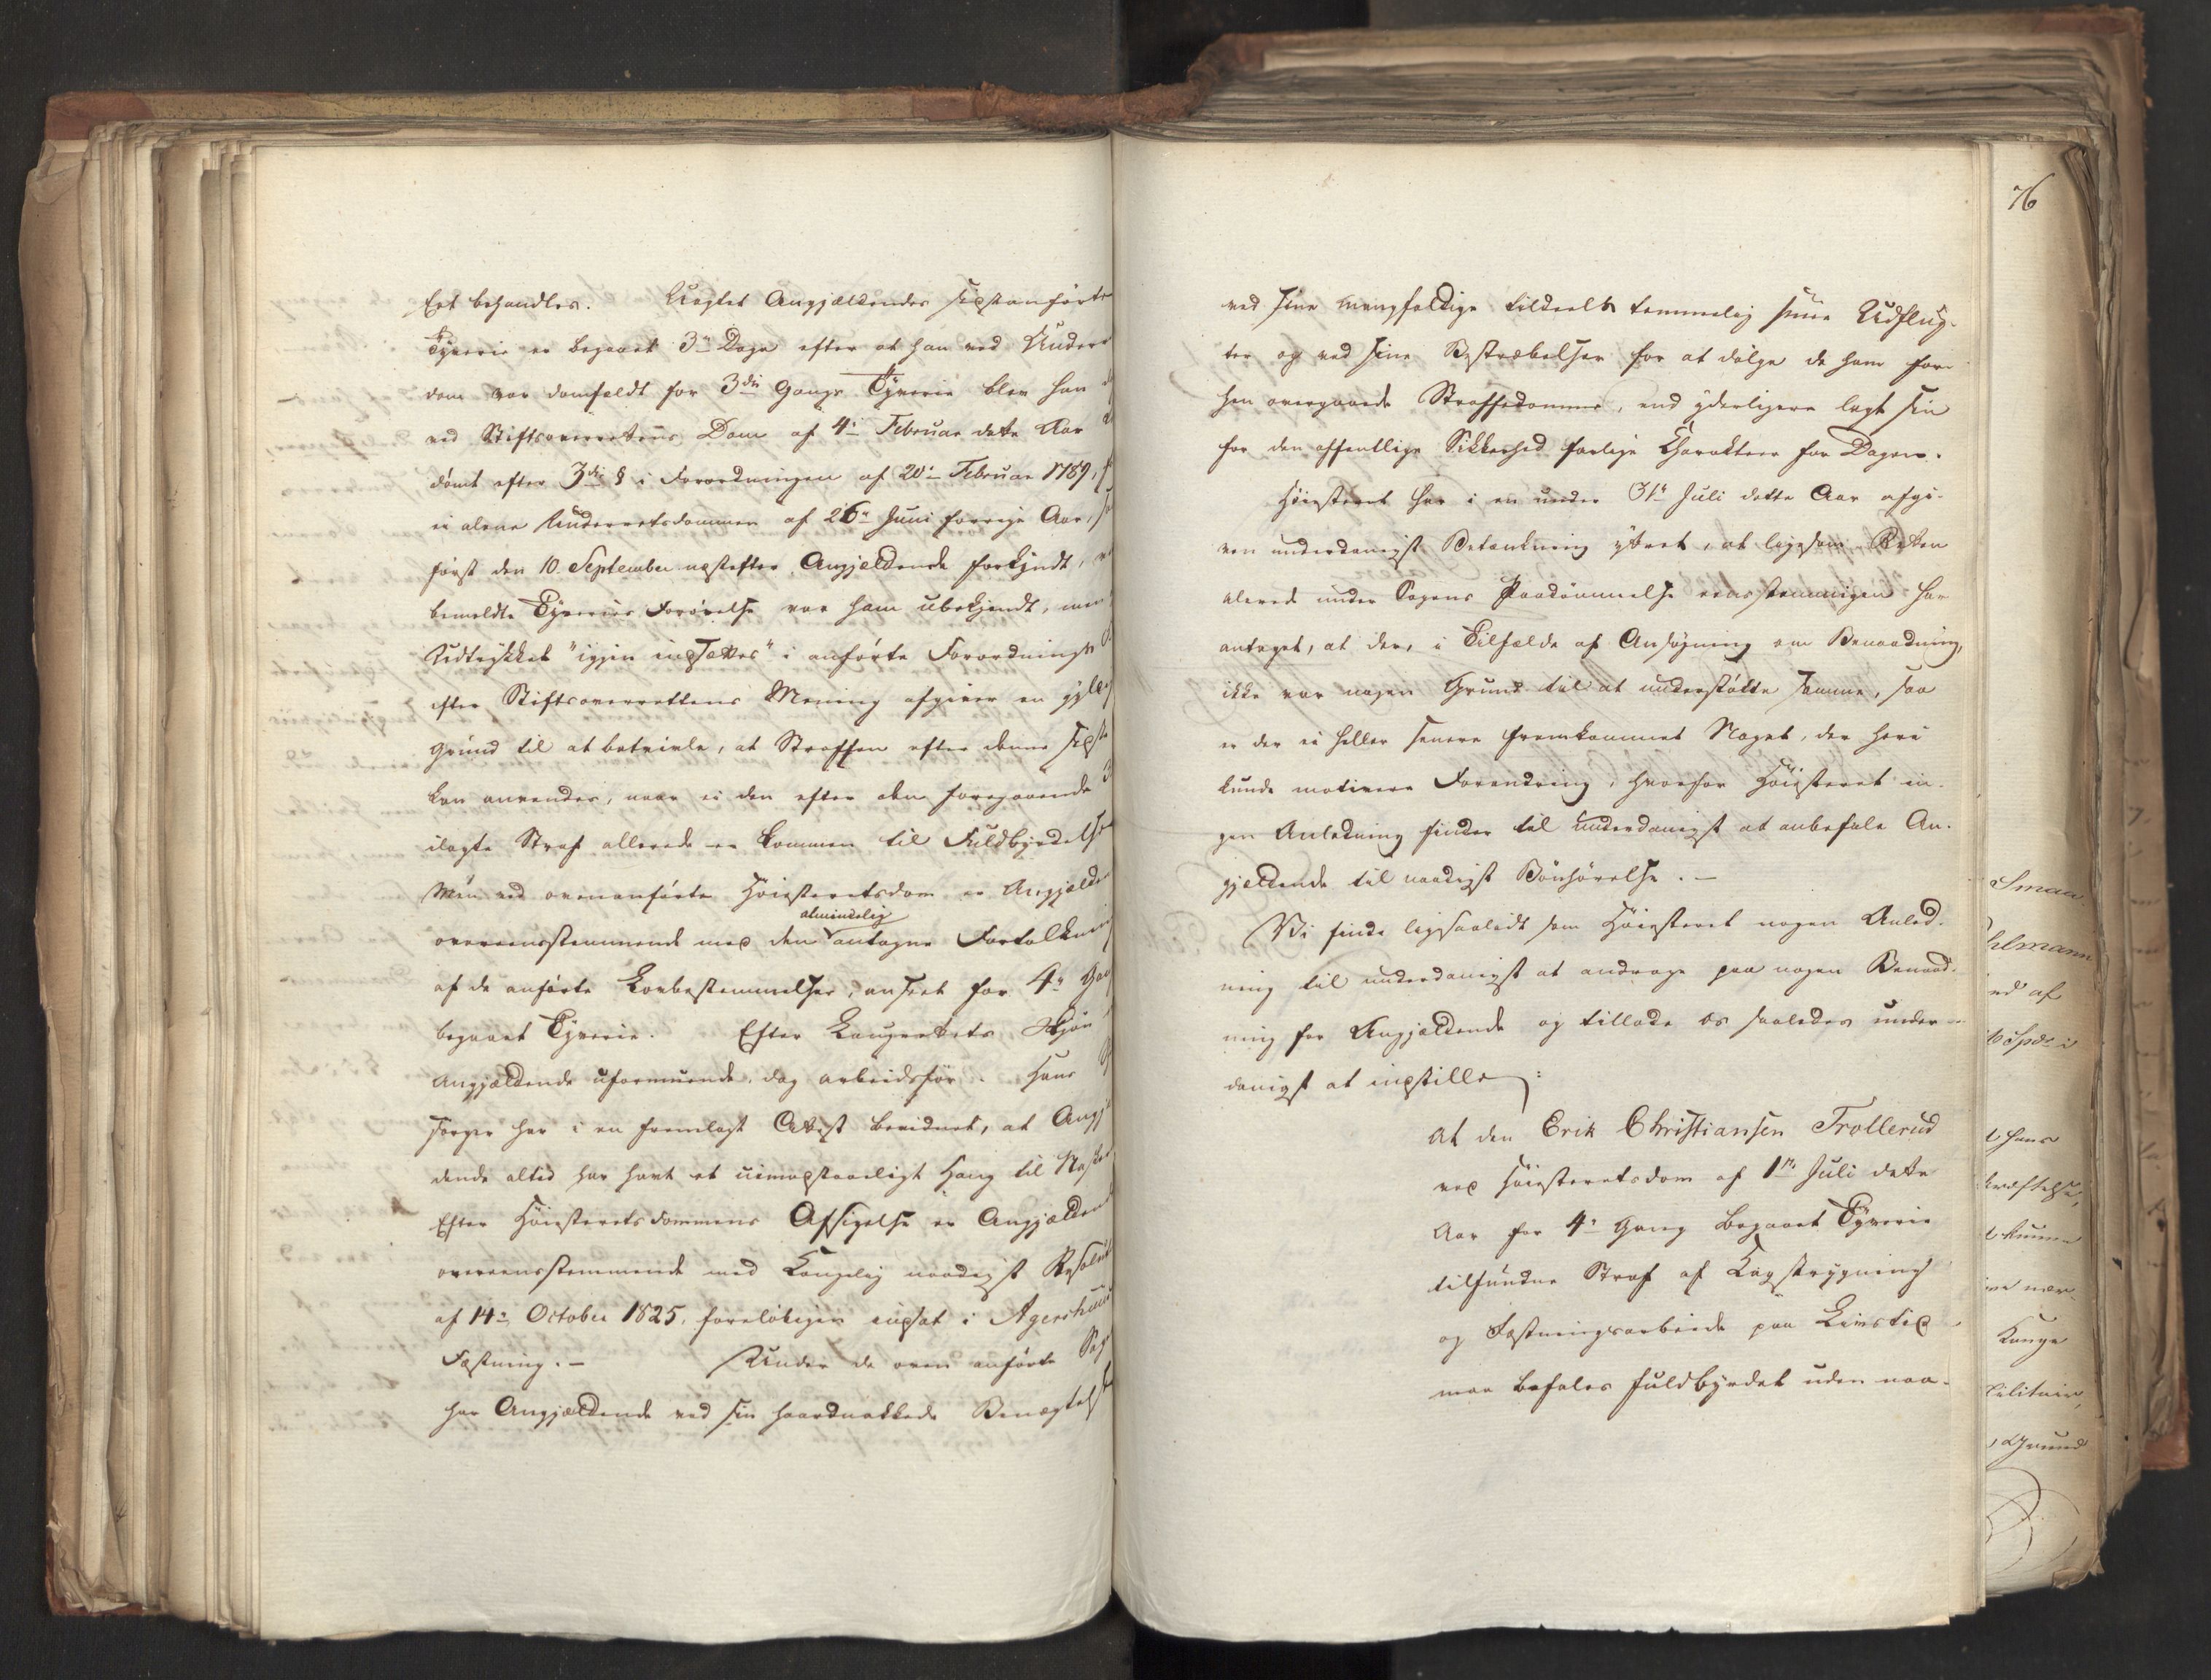 ket behandles. Uagtet Angjældendes sidstanførte
Tyverie er begaaet 3de Dage efter at han ved Under
dom var domfældt for 3die Gangs Tyverie blev han
ved Stiftsoverrettens Dom af 4de Februar dette Aar
dømt efter 3die § i Forordningen af 20de Februar 1789,
ei alene Underretsdommen af 26de Juni forrige Aar,
først den 10. September næstefter Angjeldende forkyndt,
bemeldte Tyveries Forøvelse var ham ubekjendt, men
Udtrykket "igjen indsættes" i anførte Forordnings
efter Stiftsoverrettens Mening afgiver en gyldig
Grund til at betvivle, at Straffen efter denne sidste
kan anvendes, naar ei den efter den foregaaende 3
ilagte Straf allerede er kommen til Fuldbyrdelse
Men ved ovenanførte Høiesteretsdom er Angjælde
overeensstemmende med den almindelig antagne Fortolkning
af de anførte Lovbestemmelser, anseet for 4de Gang
begaaet Tyverie. Efter Laugrettets Skjøn
Angjældende uformuende, dog arbeidsfør. Hans
sørger har i en fremlagt Attest bevidnet, at Angj
dende altid har havt et uimodstaaeligt Hang til
Efter Høiesteretsdommens Afsigelse er Angjælden
overeensstemmende med Kongelig naadigst Resolut
af 14de October 1825, foreløbigen indsat i Agershuus
Fæstning. – Under de oven anførte Sag
har Angjældende ved sin haardnakkede Benægtelse
76
ved sine mangfoldige tildeels temmelig Udflug-
ter og ved sine Bestræbelser for at dølge de ham for-
hen overgaaede Straffedomme, end yderligere lagt sin
for den offentlige Sikkerhed farlige Charakteer for Dagen.
Høiesteret har i en under 31te Juli dette Aar afgi-
ven underdanigst Betænkning yttret, at ligesom Retten
alerede under Sagens Paadømmelse eensstemmigen har
antaget, at der, i Tilfælde af Ansøgning om Benaadning,
ikke var nogen Grund til at understøtte samme, saa
er der ei heller senere fremkommet Noget, der heri
kunde motivere Forandring, hvorfor Høiesteret in-
gen Anledning finder til underdanigst at anbefale An-
gjeldende til naadigst Bønhørelse. –
Vi finde ligesaalidt som Høiesteret nogen Anled-
ning til underdanigst at andrage paa nogen Benaad-
ning for Angjældende og tillade os saaledes under-
danigst at indstille:
At den Erik Christiansen Trollerud
ved Høiesteretsdom af 1ste Juli dette
Aar for 4de Gang begaaet Tyverie
tilfundne Straf af Kagstrygning
og Fæstningsarbeide paa Livstid
maa befales fuldbyrdet uden naa-
hlmann
ed af
t hans
kræftelse,
Konge
Grund